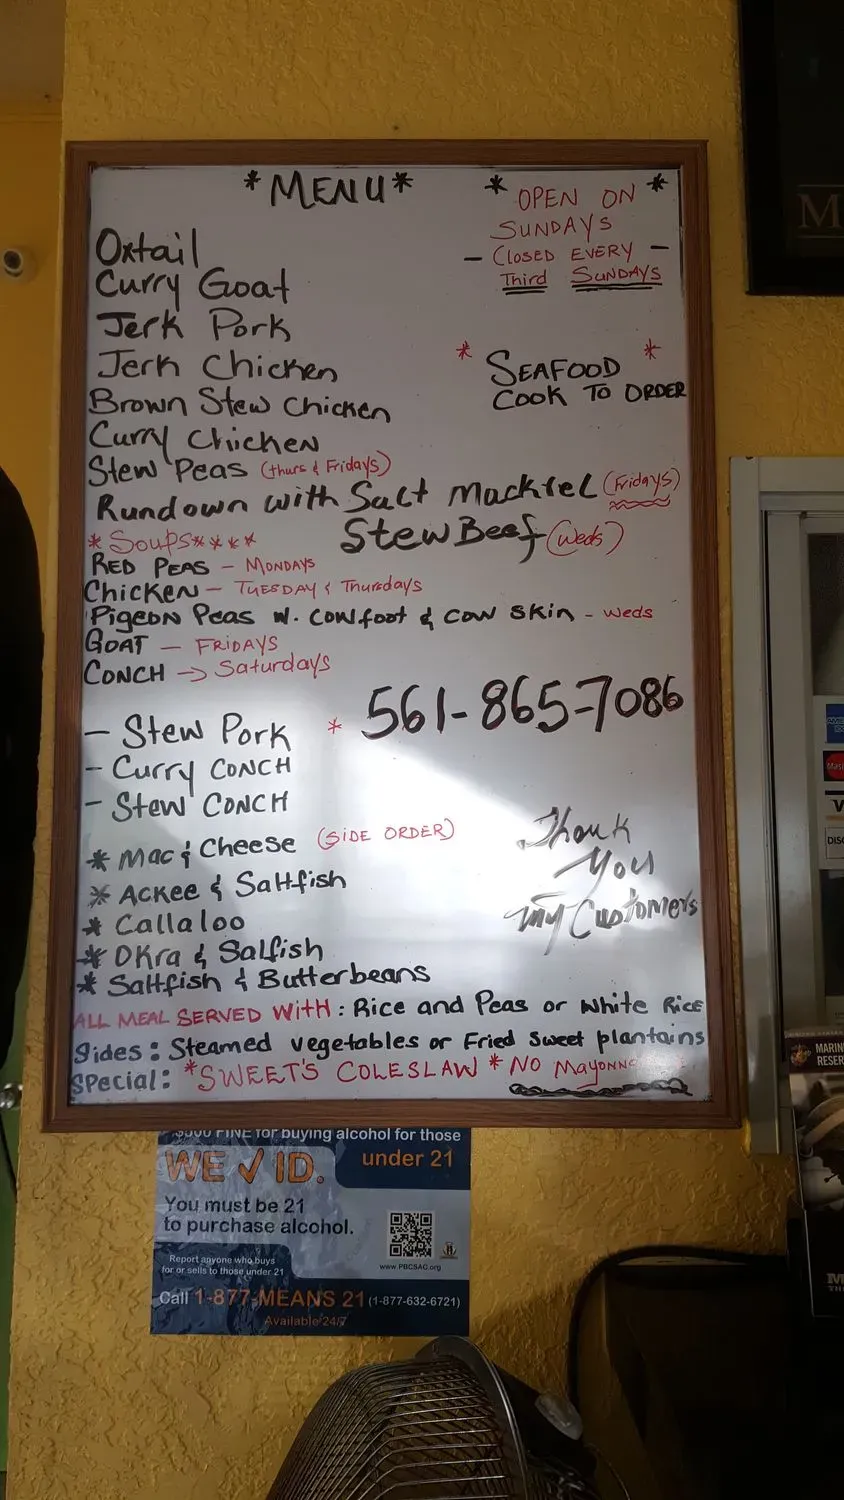 *MENU*
* OPEN ON *
SUNDAYS
- CLOSED EVERY -
Third SUNDAYS
Oxtail
Curry Goat
Jerk Pork
Jerk Chicken
* SEAFOOD *
COOK TO ORDER
Brown Stew Chicken
Curry Chicken
Stew Peas (thurs & Fridays)
Rundown with Salt Mackrel (Fridays)
*Soups****
Stew Beef (Weds)
RED PEAS - MONDAYS
Chicken - TUESDAY & Thursdays
Pigeon Peas w. cowfoot & cow skin - weds
GOAT - FRIDAYS
CONCH -> Saturdays
* 561-865-7086
- Stew Pork
- Curry CONCH
- Stew CONCH
* Mac & Cheese (SIDE ORDER)
* Ackee & Saltfish
* Callaloo
* OKra & Salfish
* Saltfish & Butterbeans
Thank
You
my Customers
ALL MEAL SERVED WITH: Rice and Peas or white Rice
Sides: Steamed vegetables or Fried Sweet plantains
Special: *SWEET'S COLESLAW * NO
$500 FINE for buying alcohol for those
under 21
WE ✓ ID.
You must be 21
to purchase alcohol.
Report anyone who buys
for or sells to those under 21
www.PBCSAC.org
Call 1-877-MEANS 21 (1-877-632-6721)
Available 24/7
M
MARIN
RESER
V
DISC